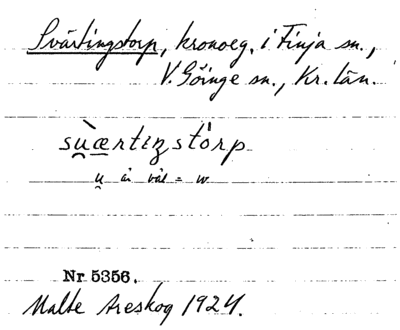 Svärtingstorp, kronoeg. i Finja sn.,
V. Göinge sn., Kr. län.
su̯æ̀rtiŋstörp
u̯ är väl = w
Nr 5356.
Malte Areskog 1924.